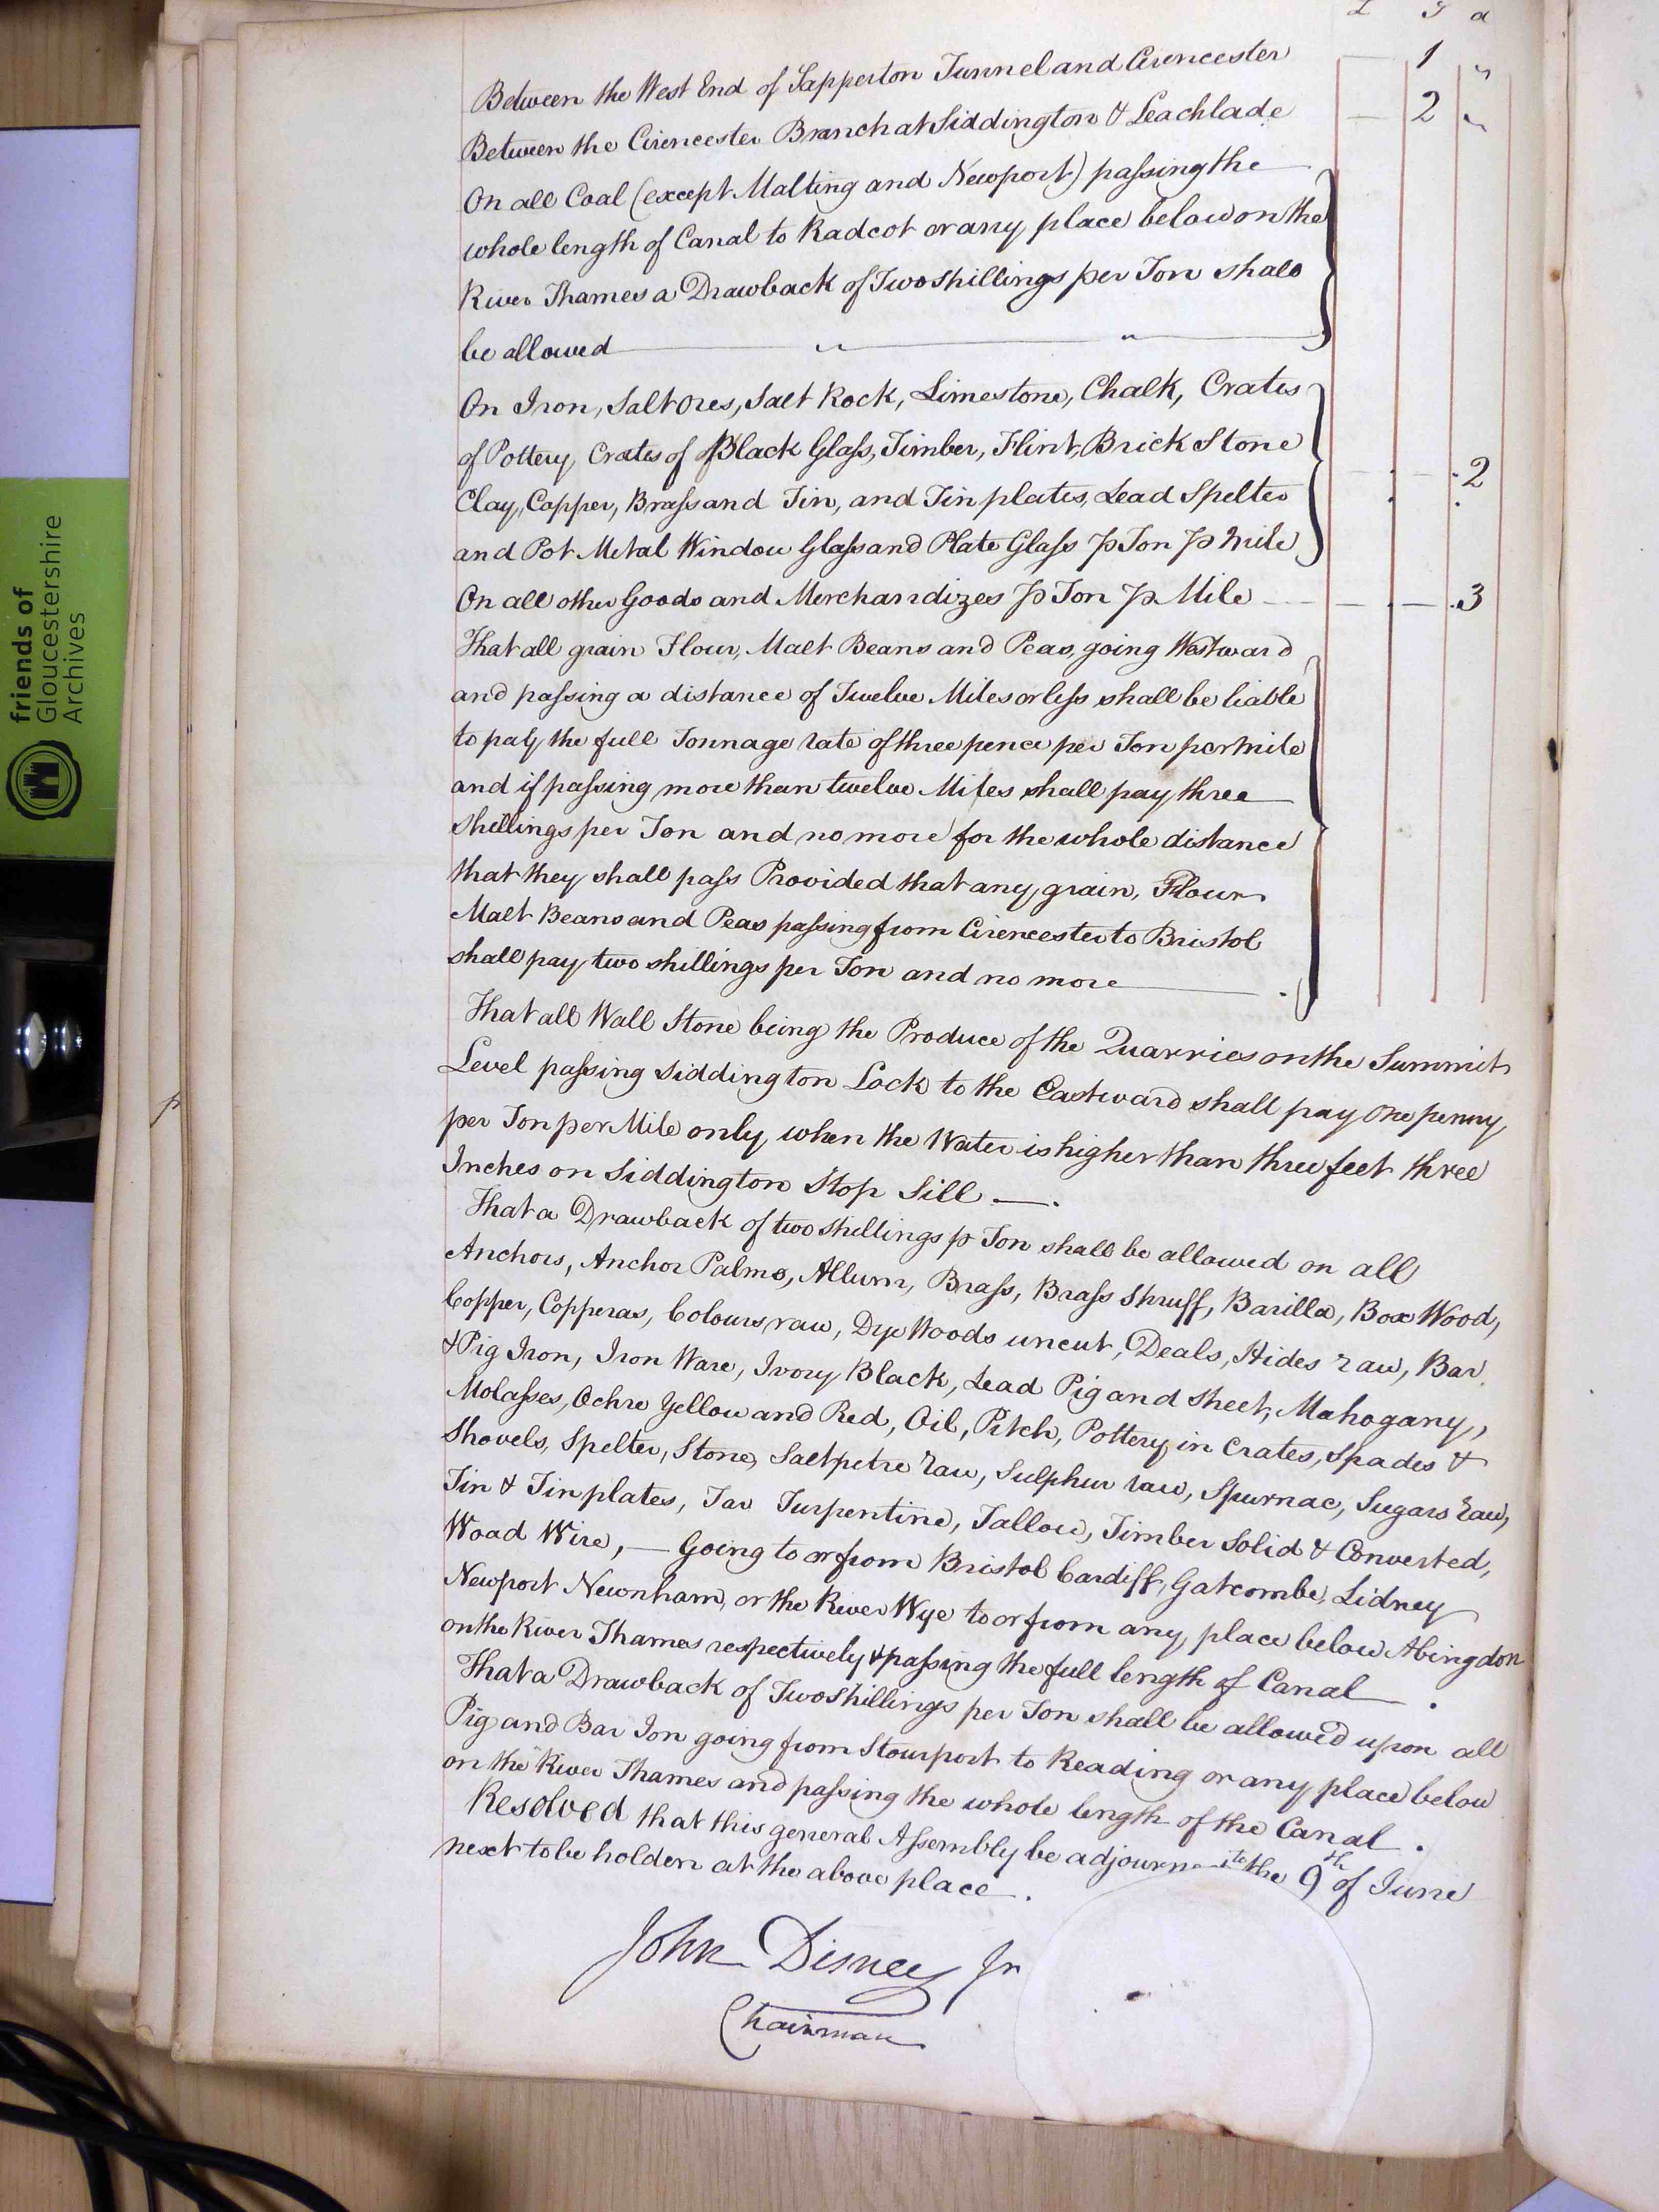 £ s d
Between the West End of Sapperton Tunnel and Cirencester — 1 "
Between the Cirencester Branch at Siddington & Leachlade — 2 "
On all Coal (except Malting and Newport) passing the
whole length of Canal to Radcot or any place below on the
River Thames a Drawback of Two Shillings per Ton shall
be allowed
On Iron, Salt Ores, Salt Rock, Limestone, Chalk, Crates
of Pottery, Crates of Black Glass, Timber, Flint, Brick Stone
Clay, Copper, Brass and Tin, and Tin plates, Lead Spelter — — .2
and Pot Metal Window Glass and Plate Glass p Ton p Mile
On all other Goods and Merchandizes p Ton p Mile — — .3
That all grain Flour, Malt Beans and Peas, going Westward
and passing a distance of Twelve Miles or less shall be liable
to pay the full Tonnage rate of three pence per Ton per Mile
and if passing more than twelve Miles shall pay three
Shillings per Ton and no more for the whole distance
that they shall pass Provided that any grain, Flour
Malt Beans and Peas passing from Cirencester to Bristol
shall pay two shillings per Ton and no more
That all Wall Stone being the Produce of the Quarries on the Summit
Level passing Siddington Lock to the Eastward shall pay One penny
per Ton per Mile only, when the Water is higher than three feet three
Inches on Siddington Stop Sill —.
That a Drawback of two Shillings p Ton shall be allowed on all
Anchors, Anchor Palms, Allum, Brass, Brass Shruff, Barilla, Box Wood,
Copper, Copperas, Colours raw, Dye Woods uncut, Deals, Hides raw, Bar
& Pig Iron, Iron Ware, Ivory Black, Lead Pig and Sheet, Mahogany,
Molasses, Ochre Yellow and Red, Oil, Pitch, Pottery in Crates, Spades &
Shovels, Spelter, Stone, Saltpetre raw, Sulphur raw, Spurnac, Sugars raw,
Tin & Tin plates, Tar Turpentine, Tallow, Timber Solid & Converted,
Woad Wire, — Going to or from Bristol Cardiff, Gatcombe, Lidney
Newport Newnham, or the River Wye to or from any place below Abingdon
on the River Thames respectively & passing the full length of Canal .
That a Drawback of Two Shillings per Ton shall be allowed upon all
Pig and Bar Ion going from Stourport to Reading or any place below
on the River Thames and passing the whole length of the Canal .
Resolved that this general Assembly be adjourned to the 9th of June
next to be holden at the above place .
John Disney Jr
Chairman
p
friends of
Gloucestershire
Archives